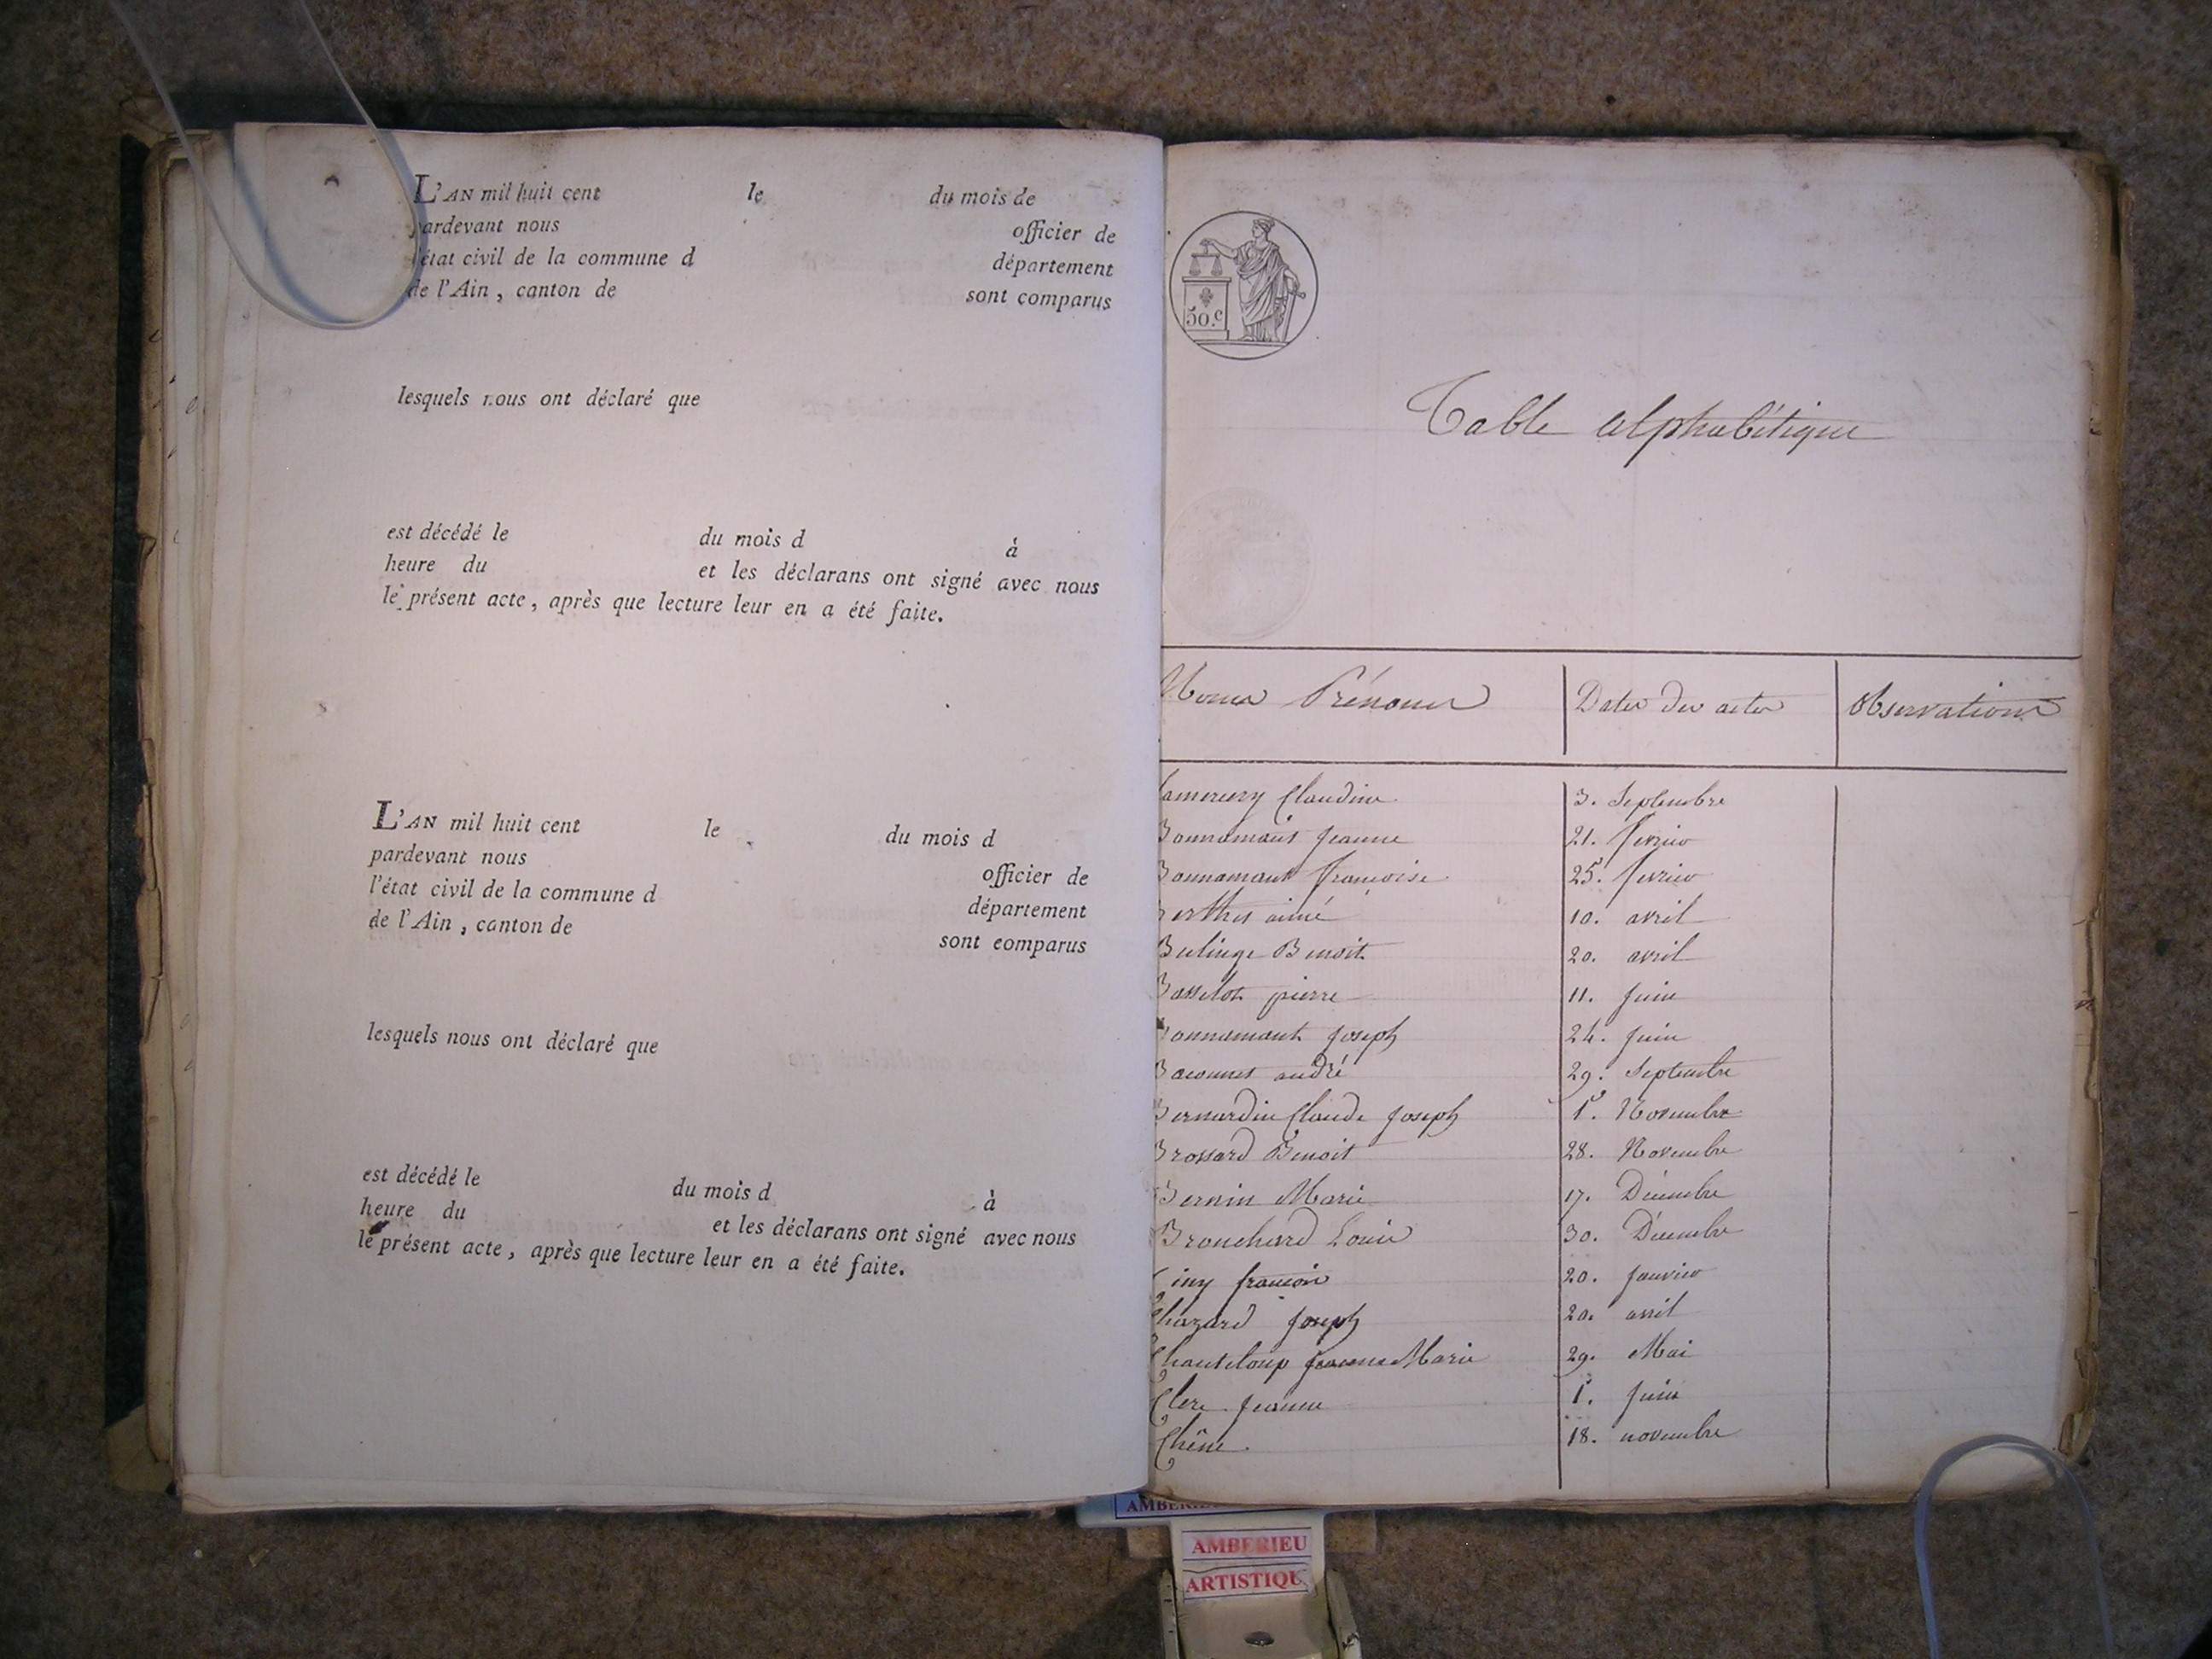 L'AN mil huit cent le du mois de
pardevant nous officier de
l'état civil de la commune d département
de l'Ain, canton de sont comparus
lesquels nous ont déclaré que
est décédé le du mois d à
heure du et les déclarans ont signé avec nous
le présent acte, après que lecture leur en a été faite.
L'AN mil huit cent le du mois d
pardevant nous officier de
l'état civil de la commune d département
de l'Ain, canton de sont eomparus
lesquels nous ont déclaré que
est décédé le du mois d à
heure du et les déclarans ont signé avec nous
le présent acte, après que lecture leur en a été faite.
50.c
Table alphabétique
Noms Prénoms Dates des actes Observations
Claudine 3. Septembre
Bonnamant Jeanne 21. fevrier
Bonnamant françoise 25. fevrier
Berthet aimé 10. avril
Benoit 20. avril
Basselot pierre 11. Juin
Bonnamant Joseph 24. Juin
Baconnet andré 29. Septembre
Bernardin Claude Joseph 1er. Novembre
Brossard Benoit 28. Novembre
Bernin Marie 17. Décembre
Bronchard Louis 30. Décembre
françois 20. Janvier
Chazard Joseph 20. avril
Chanteloup Jeanne Marie 29. Mai
Clerc Jeanne 1er. Juin
Chêne. 18. novembre
AMBERIEU
ARTISTIQU